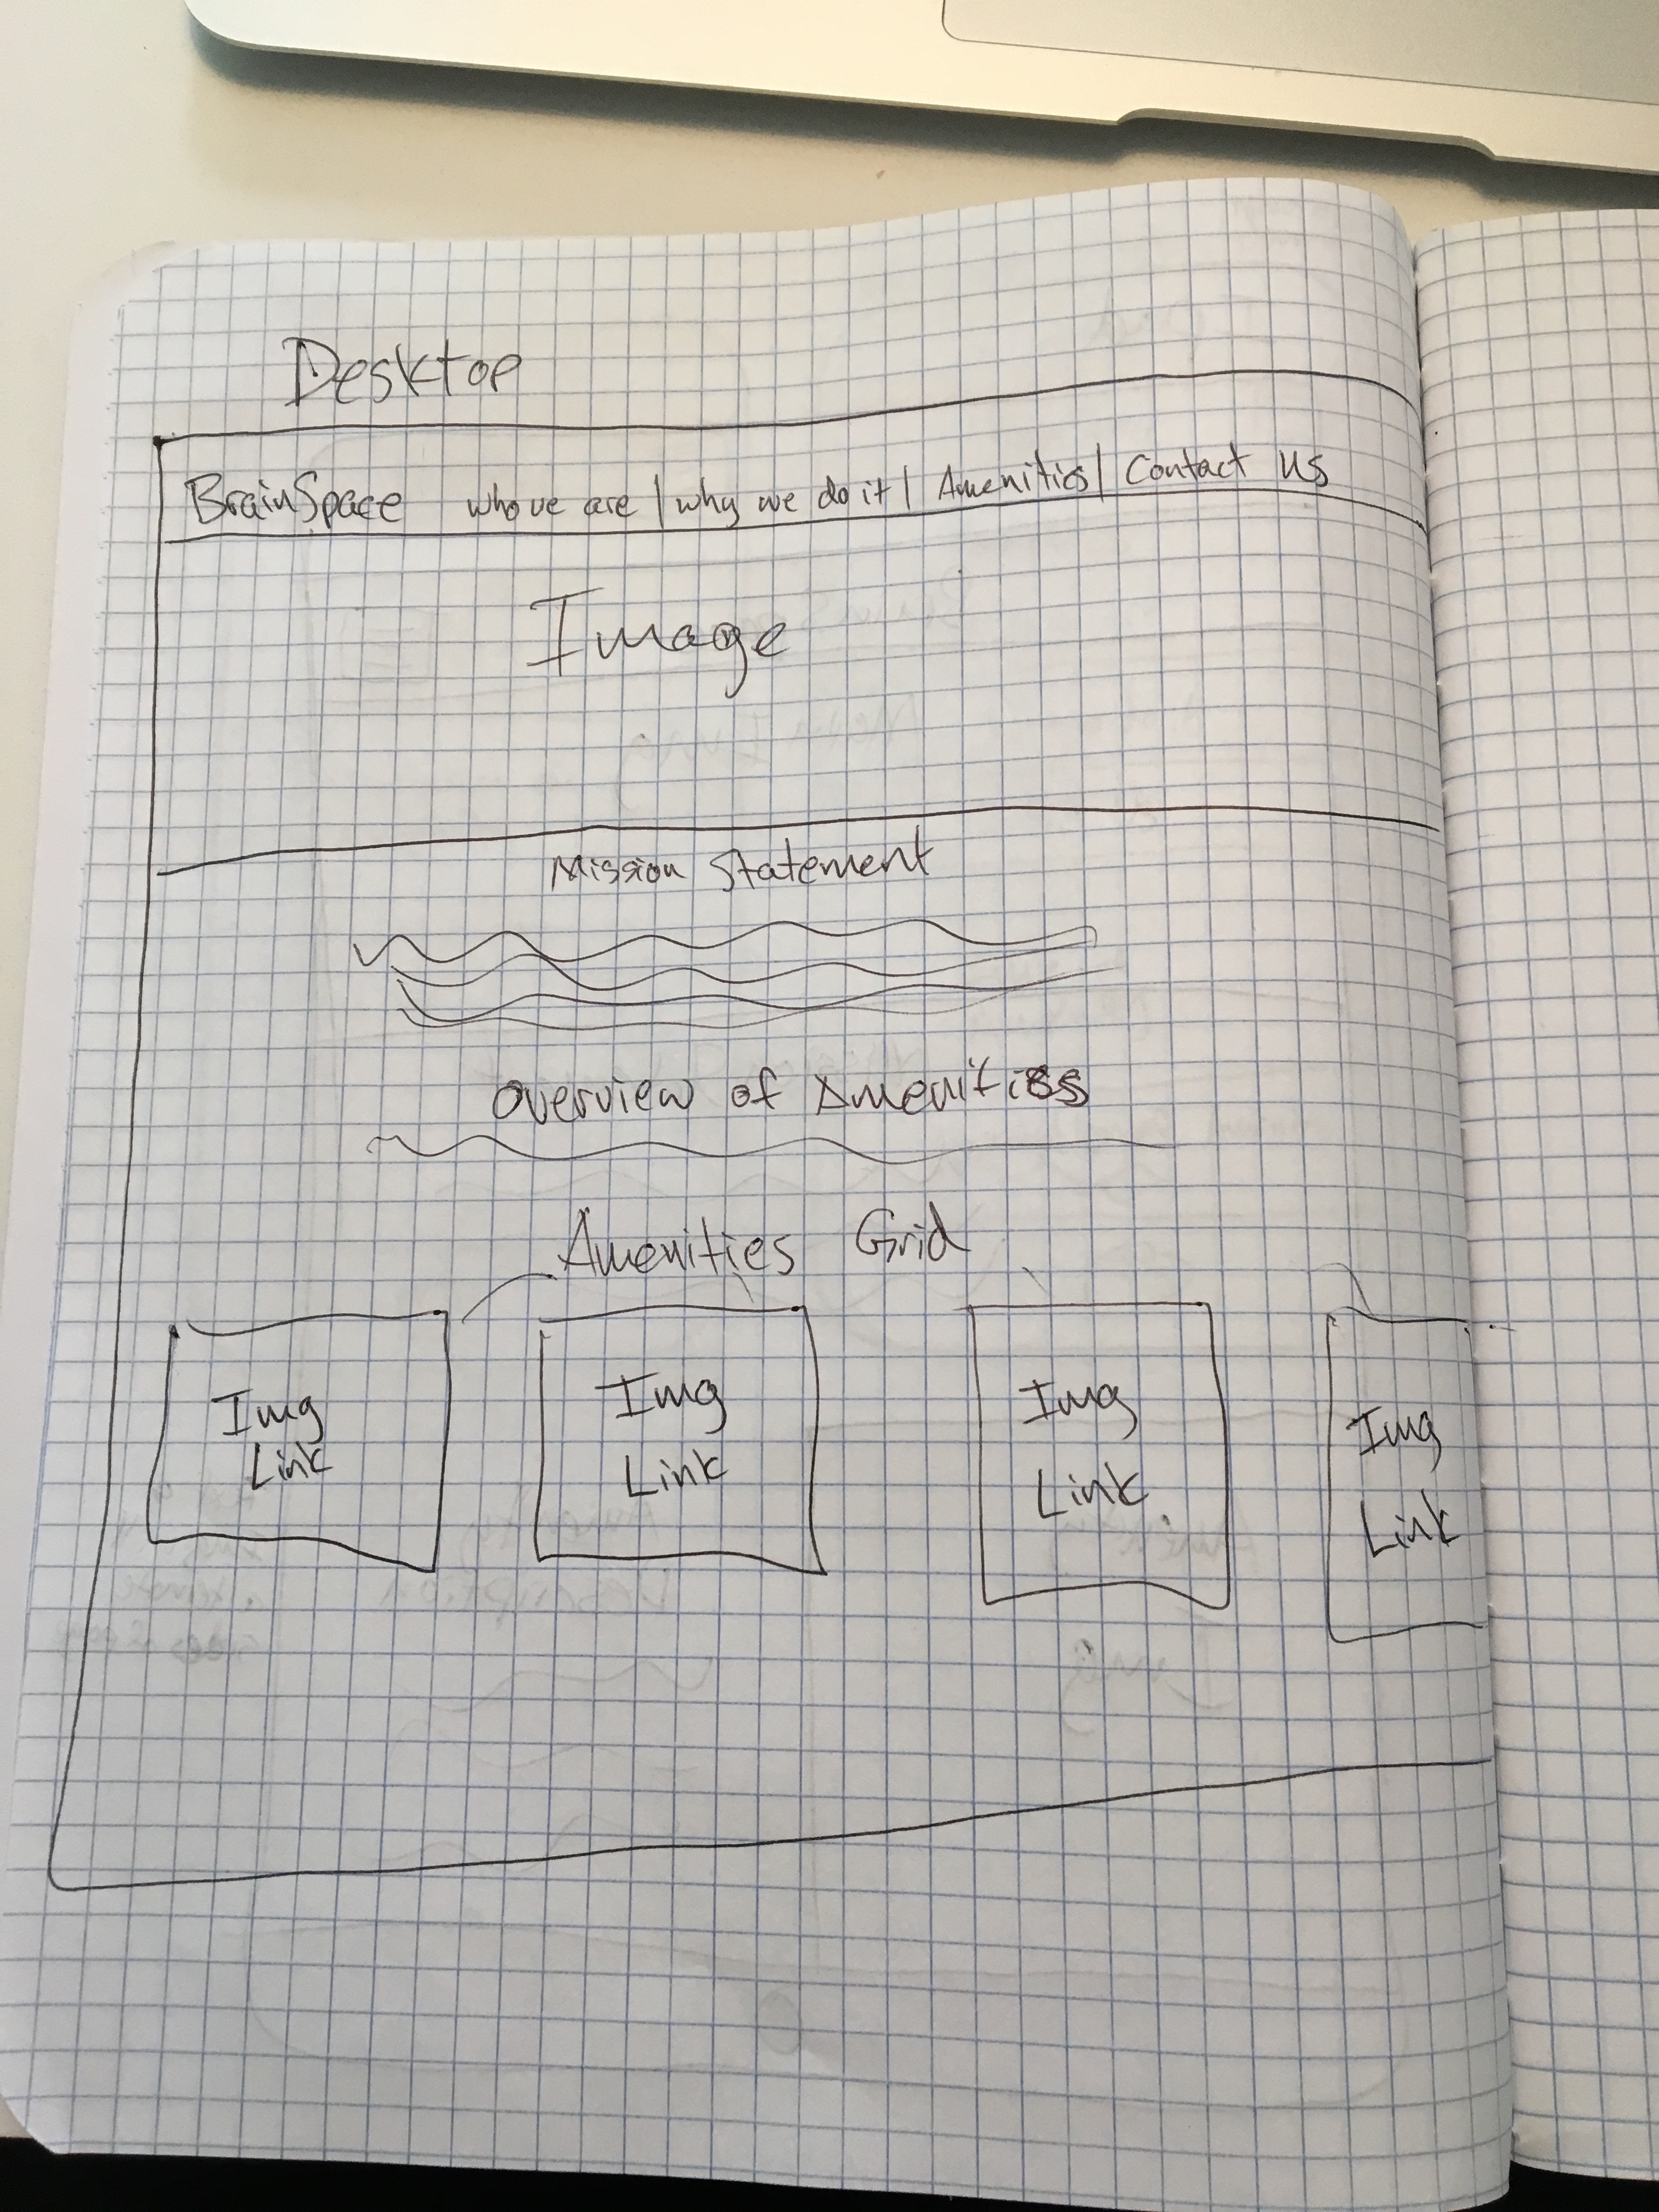 Desktop
BrainSpace who we are | why we do it | Amenities | Contact Us
Image
Mission Statement
Overview of Amenities
Amenities Grid
Img Img Img Img
Link Link Link Link